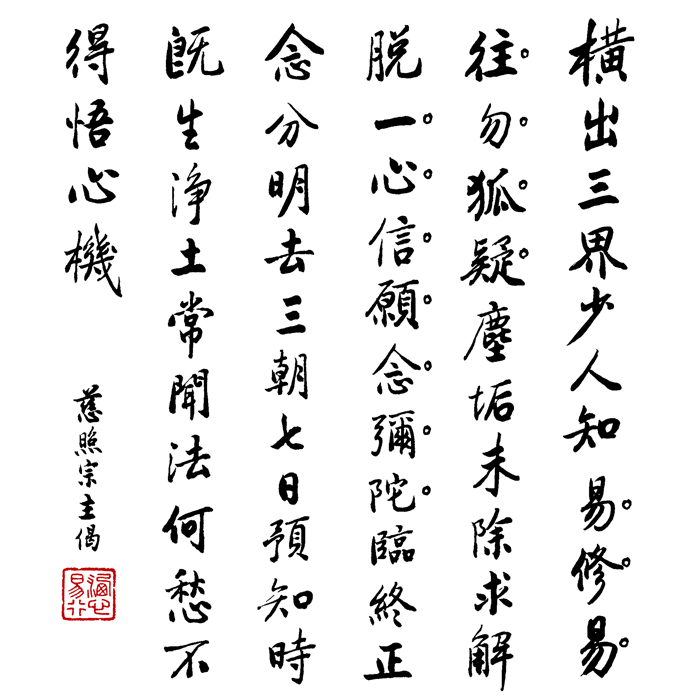 橫出三界少人知易修易
往勿狐疑塵垢未除求解
脱一心信願念彌陀臨終正
念分明去三朝七日預知時
既生淨土常聞法何愁不
得悟心機
慈照宗主偈